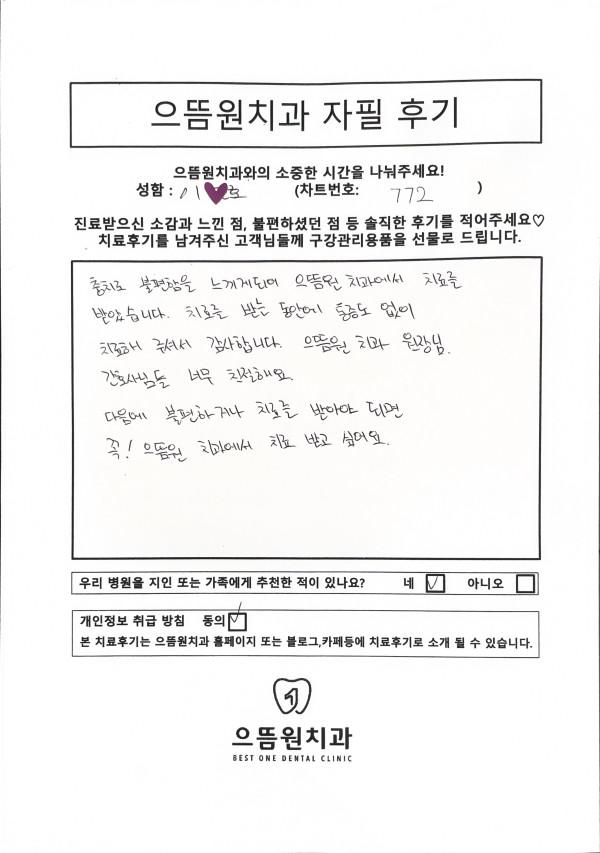 으뜸원치과 자필 후기
으뜸원치과와의 소중한 시간을 나눠주세요!
성함 : 이 호 (차트번호: 772 )
진료받으신 소감과 느낀 점, 불편하셨던 점 등 솔직한 후기를 적어주세요♡
치료후기를 남겨주신 고객님들께 구강관리용품을 선물로 드립니다.
충치로 불편함을 느끼게되어 으뜸원 치과에서 치료를
받았습니다. 치료를 받는 동안에 통증도 없이
치료해 주셔서 감사합니다. 으뜸원 치과 원장님,
간호사님들 너무 친절해요.
다음에 불편하거나 치료를 받아야 되면
꼭! 으뜸원 치과에서 치료 받고 싶어요.
우리 병원을 지인 또는 가족에게 추천한 적이 있나요? 네 아니오
개인정보 취급 방침 동의
본 치료후기는 으뜸원치과 홈페이지 또는 블로그,카페등에 치료후기로 소개 될 수 있습니다.
1
으뜸원치과
BEST ONE DENTAL CLINIC